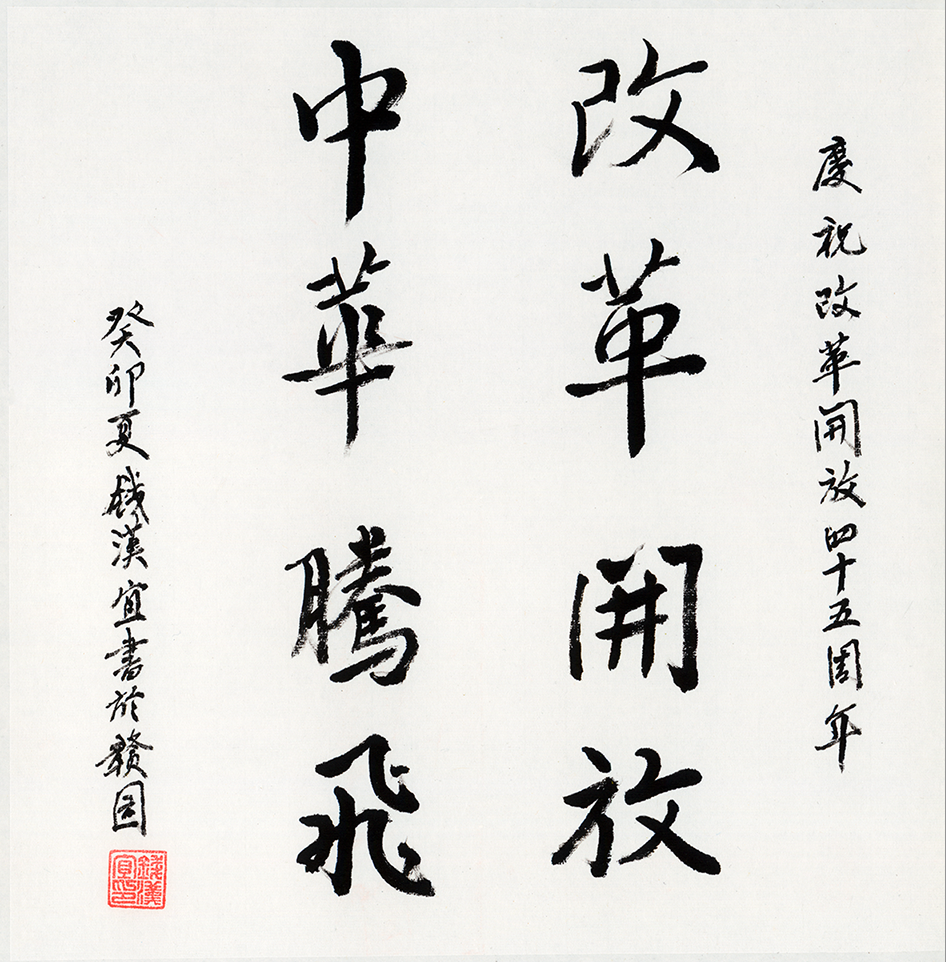 慶祝改革開放四十五周年
改革開放
中華騰飛
癸卯夏錢漢宜書於贛園
錢漢宜印